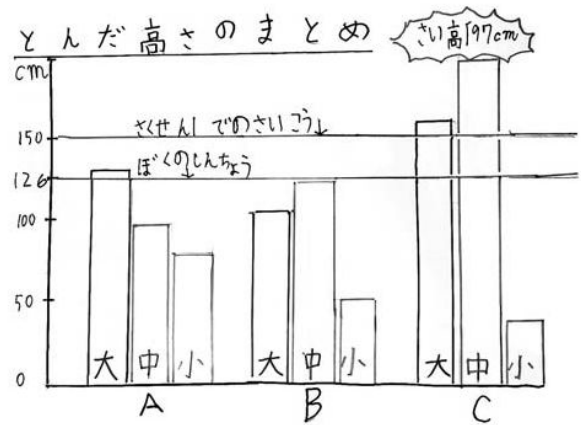 とんだ高さのまとめ
さい高197cm
cm
さくせん1でのさいこう
150
ぼくのしんちょう
126
100
50
0
大 中 小 大 中 小 大 中 小
A B C